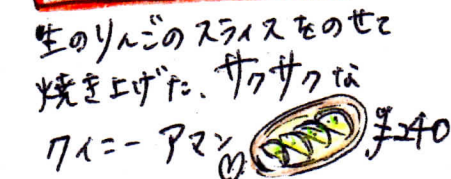 生のりんごのスライスをのせて
焼き上げた、サクサクな
クイニーアマン♡ ¥240